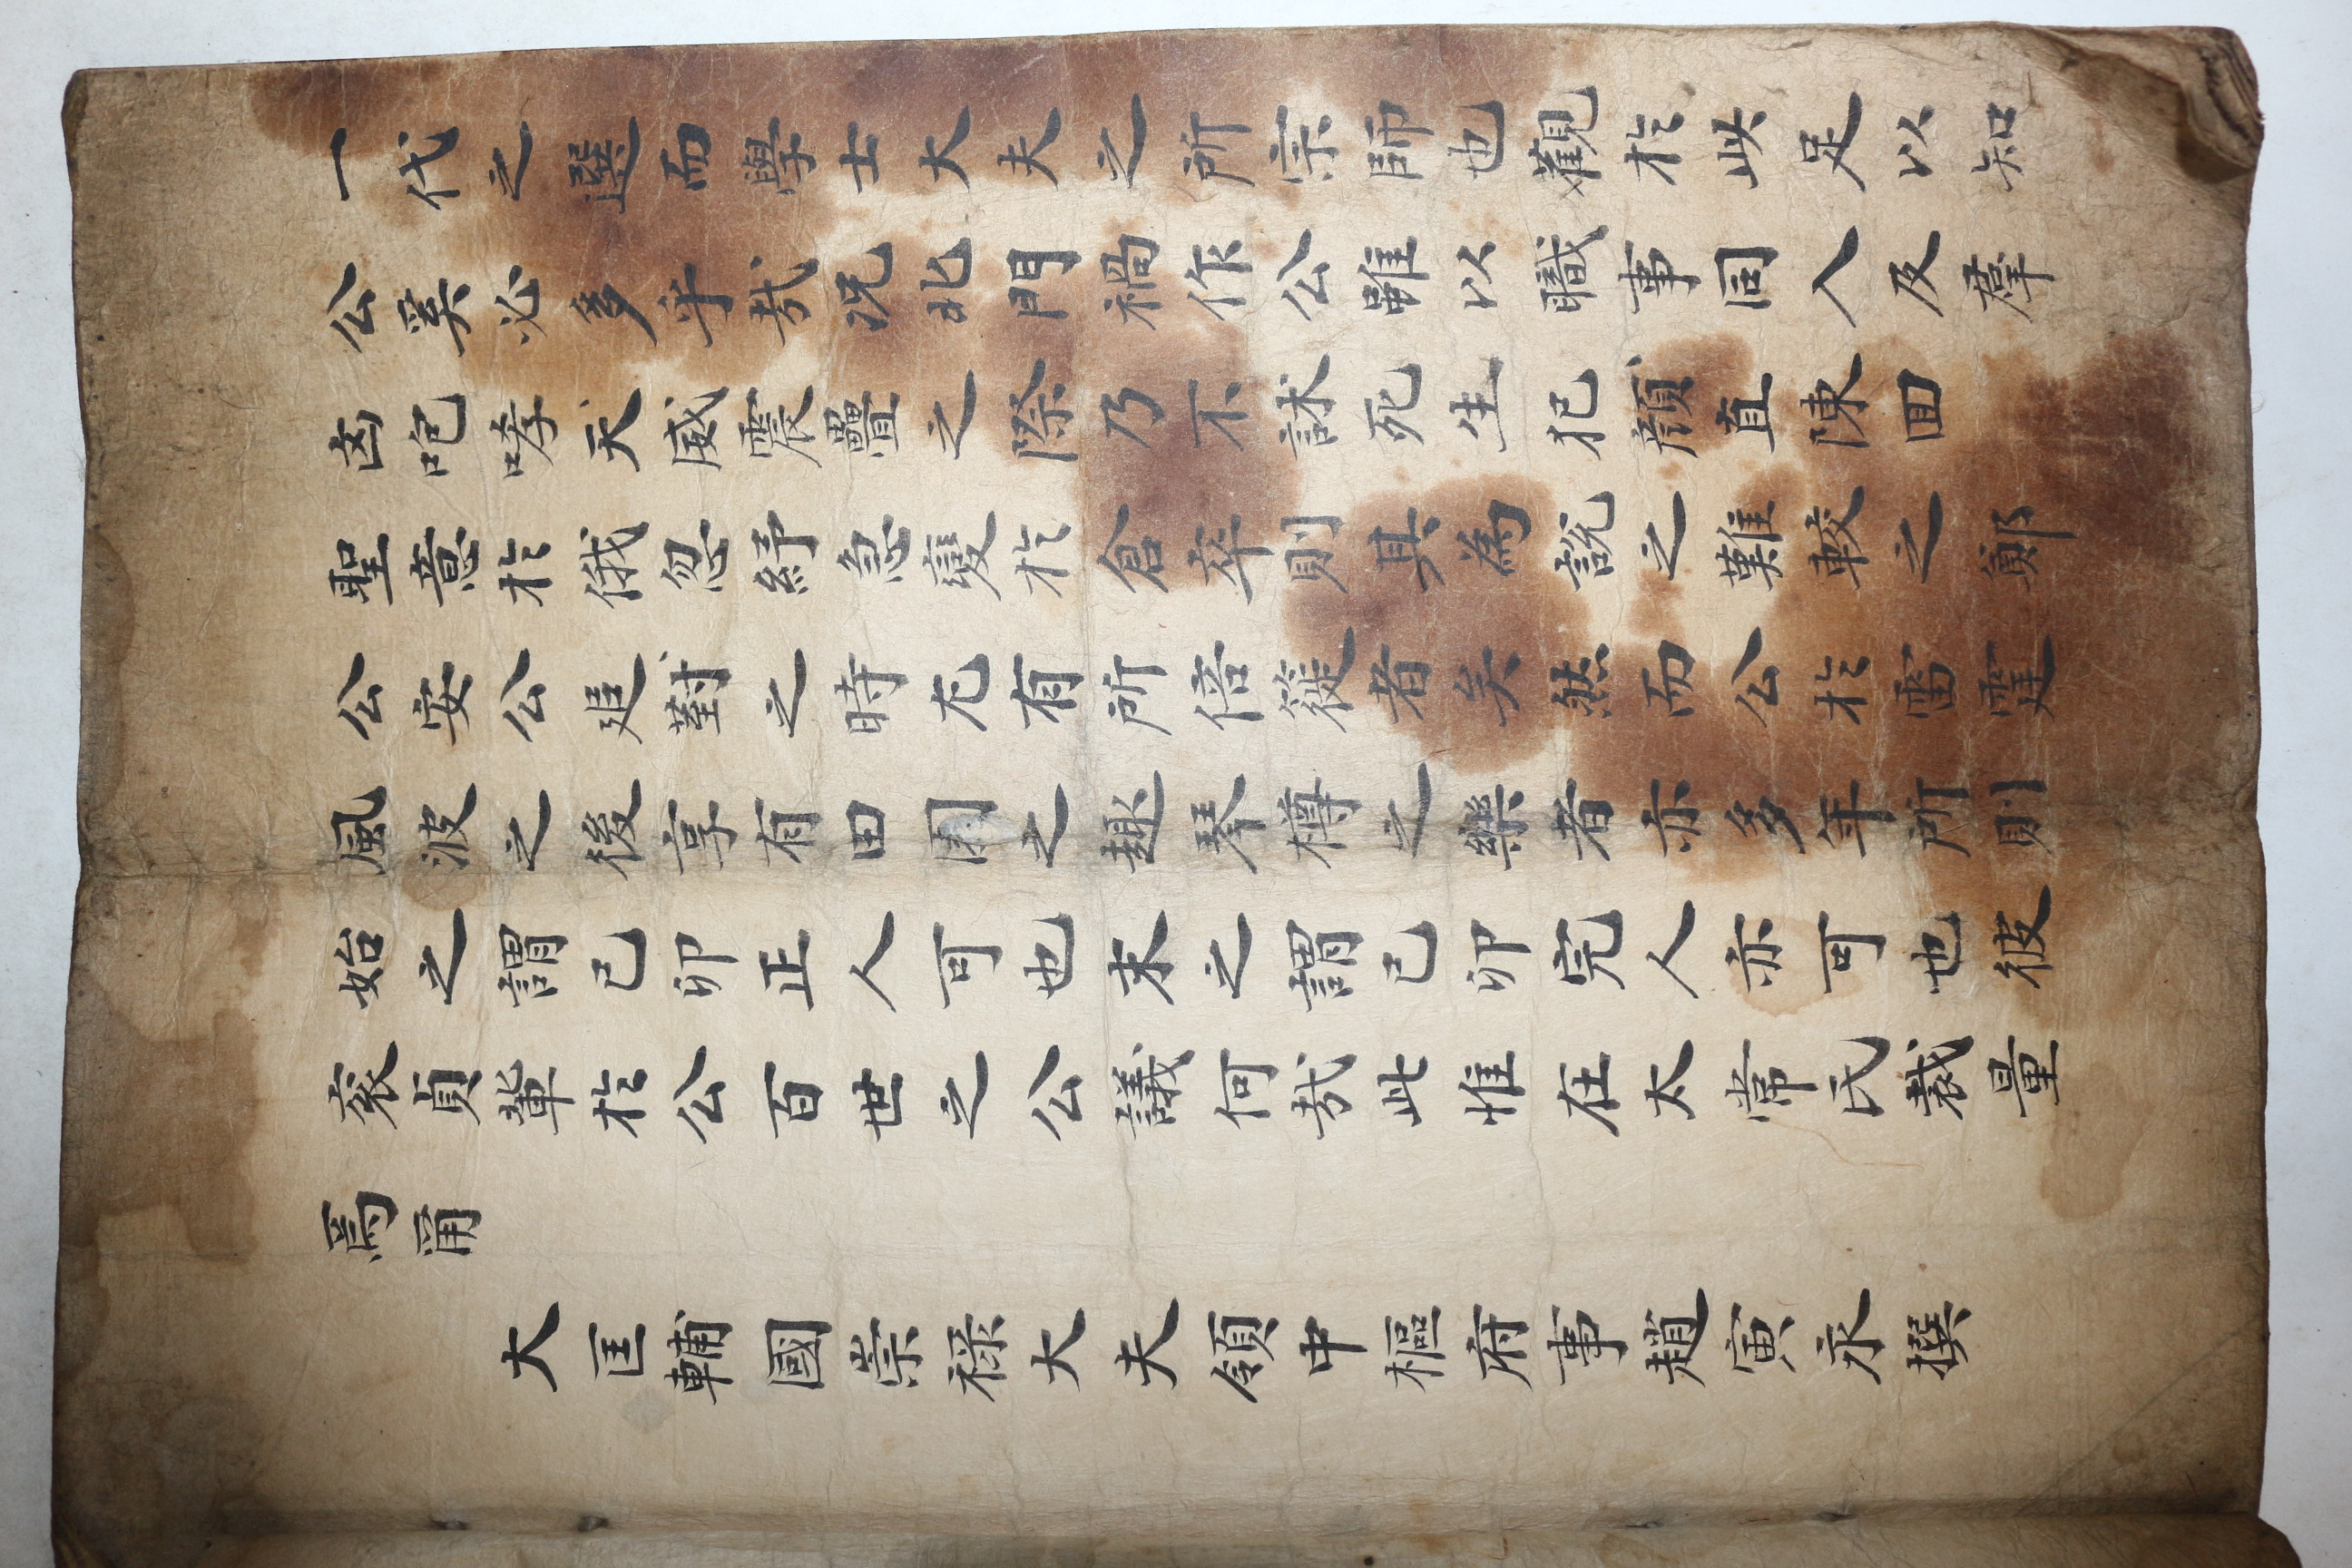 一代之選而學士大夫之所宗師也觀於此足以知
公奚必多乎哉况北門禍作公雖以職事同入及羣
凶咆哮天威震疊之際乃不訹死生犯顔直陳回
聖意於俄忽紓急變於倉卒則其為說之難較之鄭
公安公追對之時尤有所倍簁者矣然而公於雷霆
風波之後享有田園之趣琴樽之樂者亦多年所則
始之謂己卯正人可也末之謂己卯完人亦可也彼
衮貞輩於公百世之公議何哉此惟在太常氏裁量
焉甭
大匡輔國崇祿大夫領中樞府事趙寅永撰